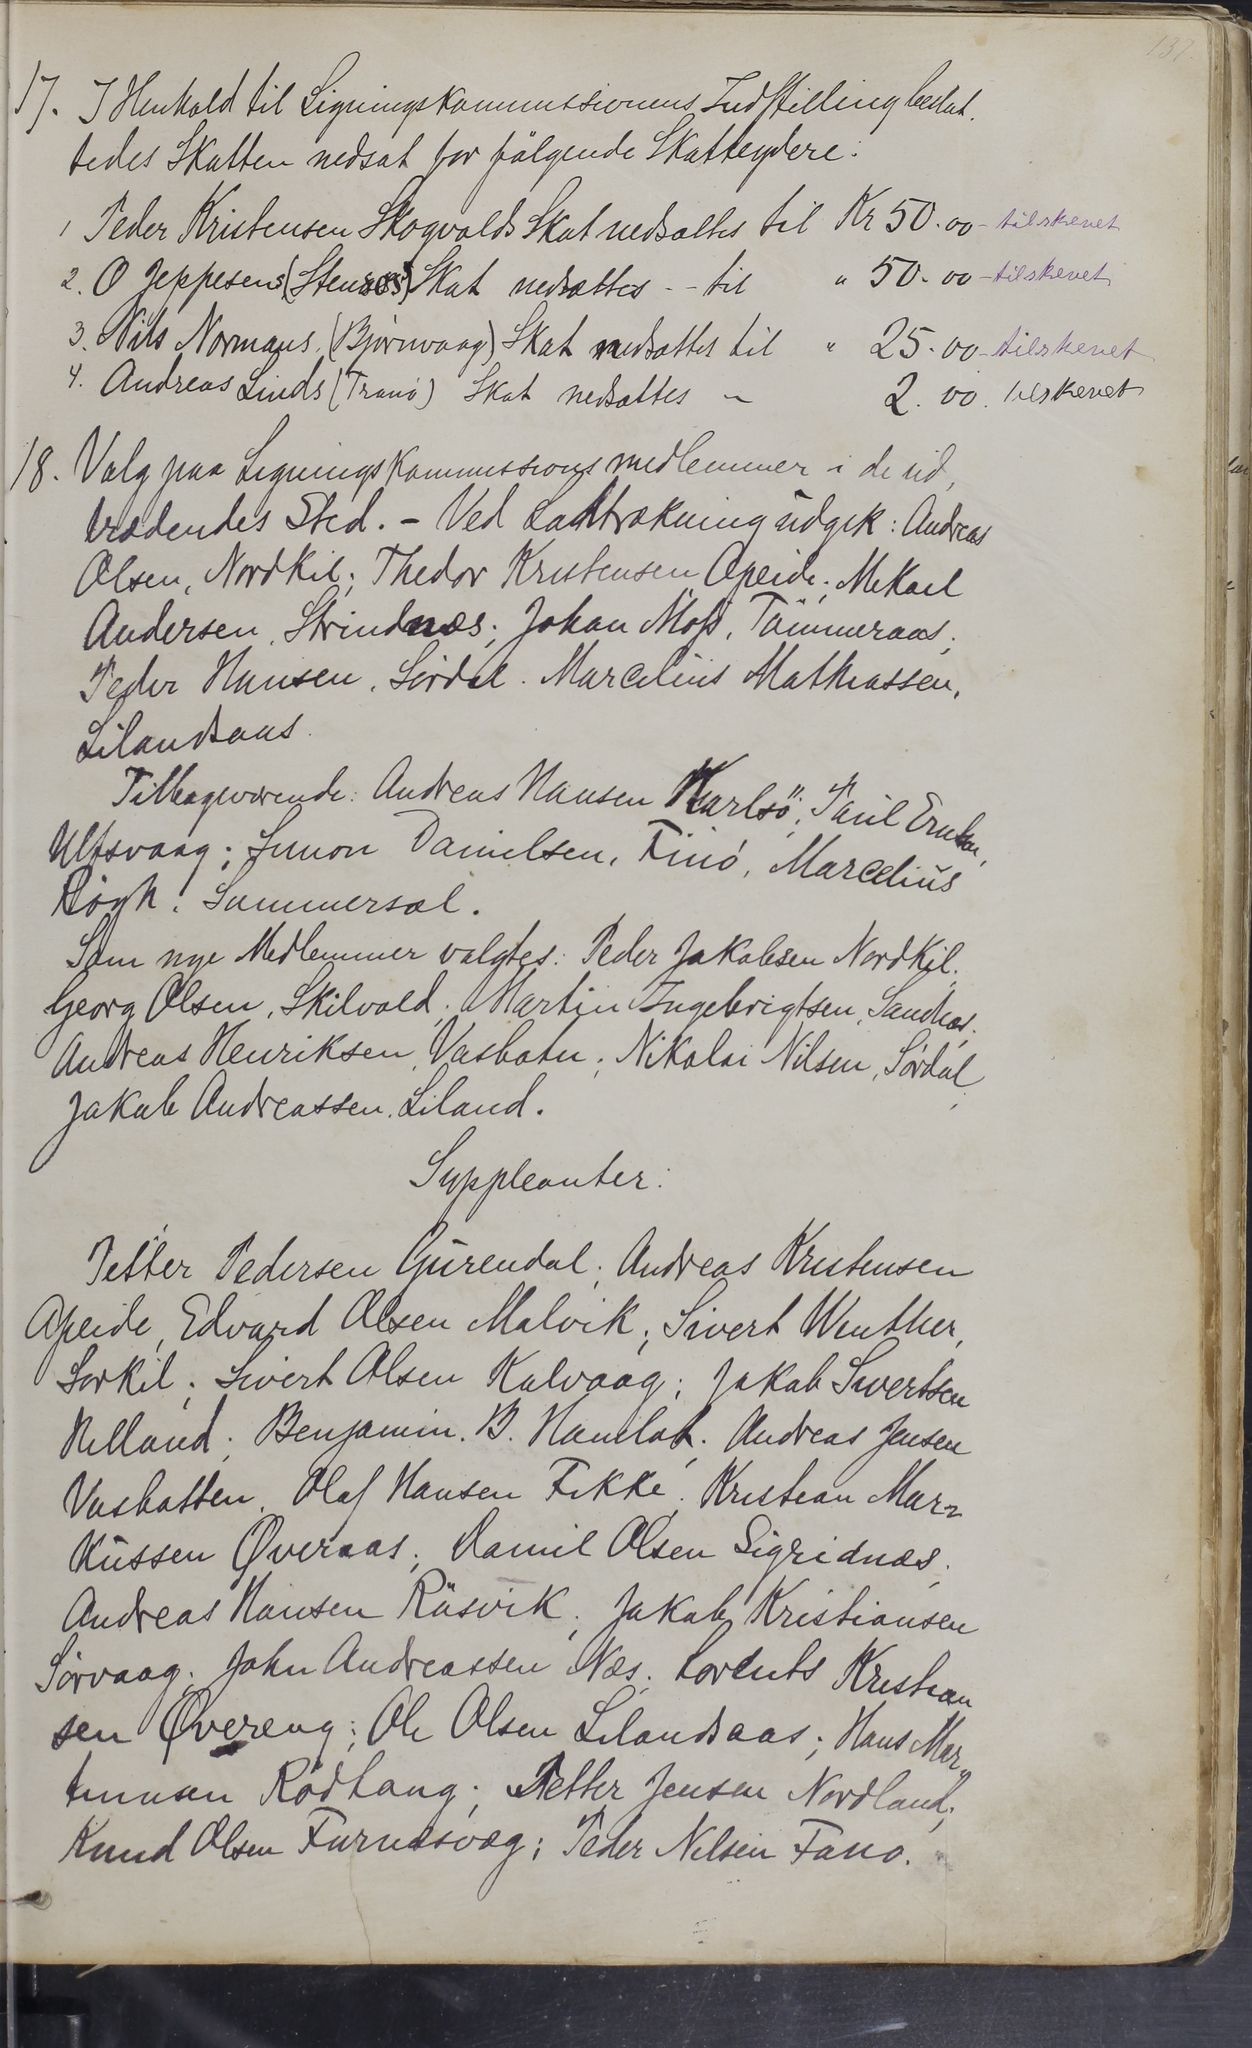 137.
17. I Henhold til Ligningskommissionens Indstilling beslut,
tedes Skatten nedsat for følgende Skatteydere:
1 Peder Kristensen Skogvolds Skat nedsattes til Kr 50.00 - tilskrevet
2. O Jeppesens (Stennes) Skat nedsættes -- til " 50.00 - tilskrevet
3. Nils Normans (Bjørnvaag) Skat nedsattes til " 25.00 - tilskrevet
4. Andreas Linds (Tranø) Skat nedsættes - 2.00. tilskrevet
18. Valg paa Ligningskommissionsmedlemmer i de ud,
trædendes Sted. - Ved Lodtrækning udgik: Andreas
Olsen, Nordkil; Thedor Kristensen Apeide; Mikael
Andersen, Strindnæs; Johan Moss, Tømmeraas;
Peder Hansen, Sørdal. Marcelius Mathiassen,
Lilandsaas.
Tilbageværende: Andreas Hansen Karlsø; Paul Eriksen,
Ulfsvaag; Simon Danielsen, Finø, Marcelius
Høgh, Sommersæl.
Som nye Medlemmer valgtes: Peder Jakobsen Nordkil;
Georg Olsen, Skilvold; Martin Ingebrigtsen, Sandnæs;
Andreas Henriksen, Vasbotn; Nikolai Nilsen, Sørdal;
Jakob Andreassen, Liland.
Suppleanter:
Petter Pedersen Gurendal; Andreas Kristensen
Apeide, Edvard Olsen Malvik; Sivert Winther,
Sorkil; Sivert Olsen Kalvaag; Jakob Sivertsen
Helland; Benjamin. B. Hamlot. Andreas Jensen
Vasbotten, Olaf Hansen Fikke; Kristian Mar-
kussen Øveraas; Daniel Olsen Sigridnæs;
Andreas Hansen Røsvik; Jakob Kristiansen
Sørvaag; John Andreassen Næs; Lorents Kristian
sen Øvereng; Ole Olsen Lilandsaas; Hans Mar,
tinusen Rødtang; Petter Jensen Nordland;
Knud Olsen Furnæsvæg; Peder Nilsen Fano.